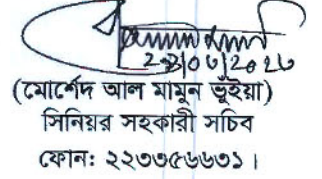 (মোর্শেদ আল মামুন ভূঁইয়া)
সিনিয়র সহকারী সচিব
ফোনঃ ২২৩৩৫৬৬৩১।